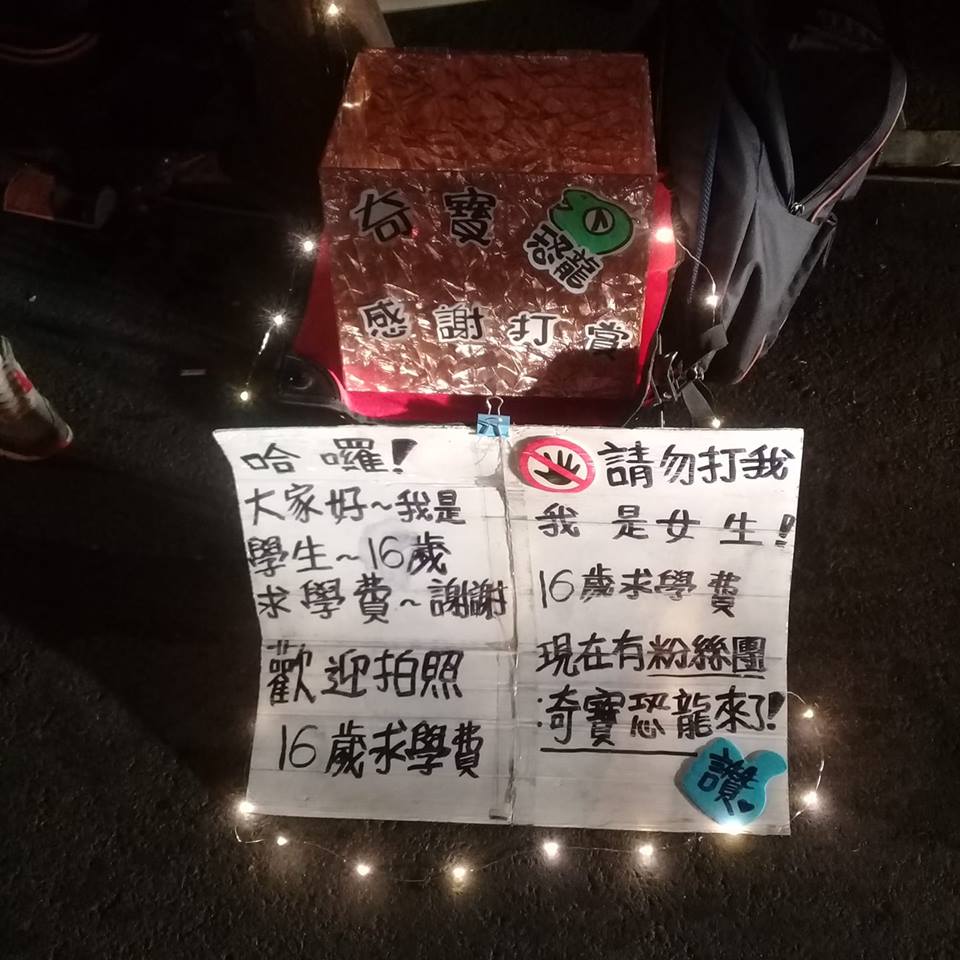 奇寶
恐龍
感謝打賞
哈囉!
大家好~我是
學生~16歲
求學費~謝謝
歡迎拍照
16歲求學費
請勿打我
我是女生!
16歲求學費
現在有粉絲團
:奇寶恐龍來了!
讚